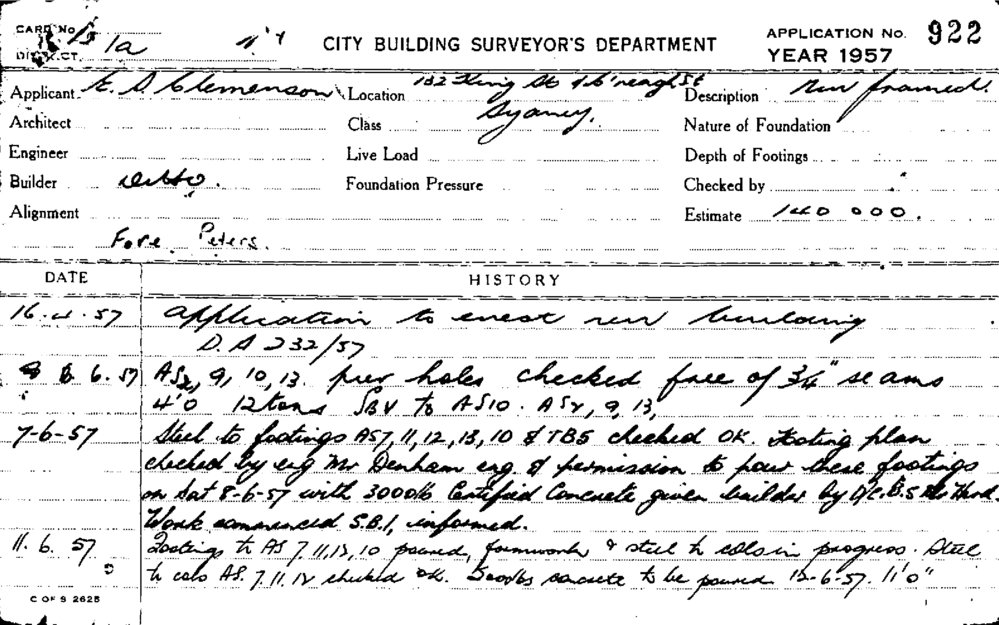 CARD No. 1a CITY BUILDING SURVEYOR'S DEPARTMENT APPLICATION No. 922
DISTRICT YEAR 1957
Applicant E. D. Clemenson Location 132 King St & C'reagh St Description new framed.
Architect Class Sydney. Nature of Foundation
Engineer Live Load Depth of Footings
Builder Ditto. Foundation Pressure Checked by
Alignment Estimate 140 000.
Fore. Peters.
DATE HISTORY
16.4.57 application to erect new building
D.A 232/57
6.57 AS2, 9, 10, 13. pier holes checked free of 3/4" seams
4'0 12 tons SBV to AS10. AS 9, 13,
7-6-57 Steel to footings AS7, 11, 12, 13, 10 & TB5 checked OK. Footing plan
checked by eng Mr Denham eng & permission to pour these footings
on Sat 8-6-57 with 3000lb Certified Concrete given builder by D/C.B.S
Work commenced S.B.I, informed.
11.6.57 Footings to AS 7, 11, 12, 10 poured, formwork & steel to cols in progress. Steel
to cols AS. 7. 11. 12 checked OK. 3000lbs concrete to be poured 12-6-57. 11'0"
C OF S 2625